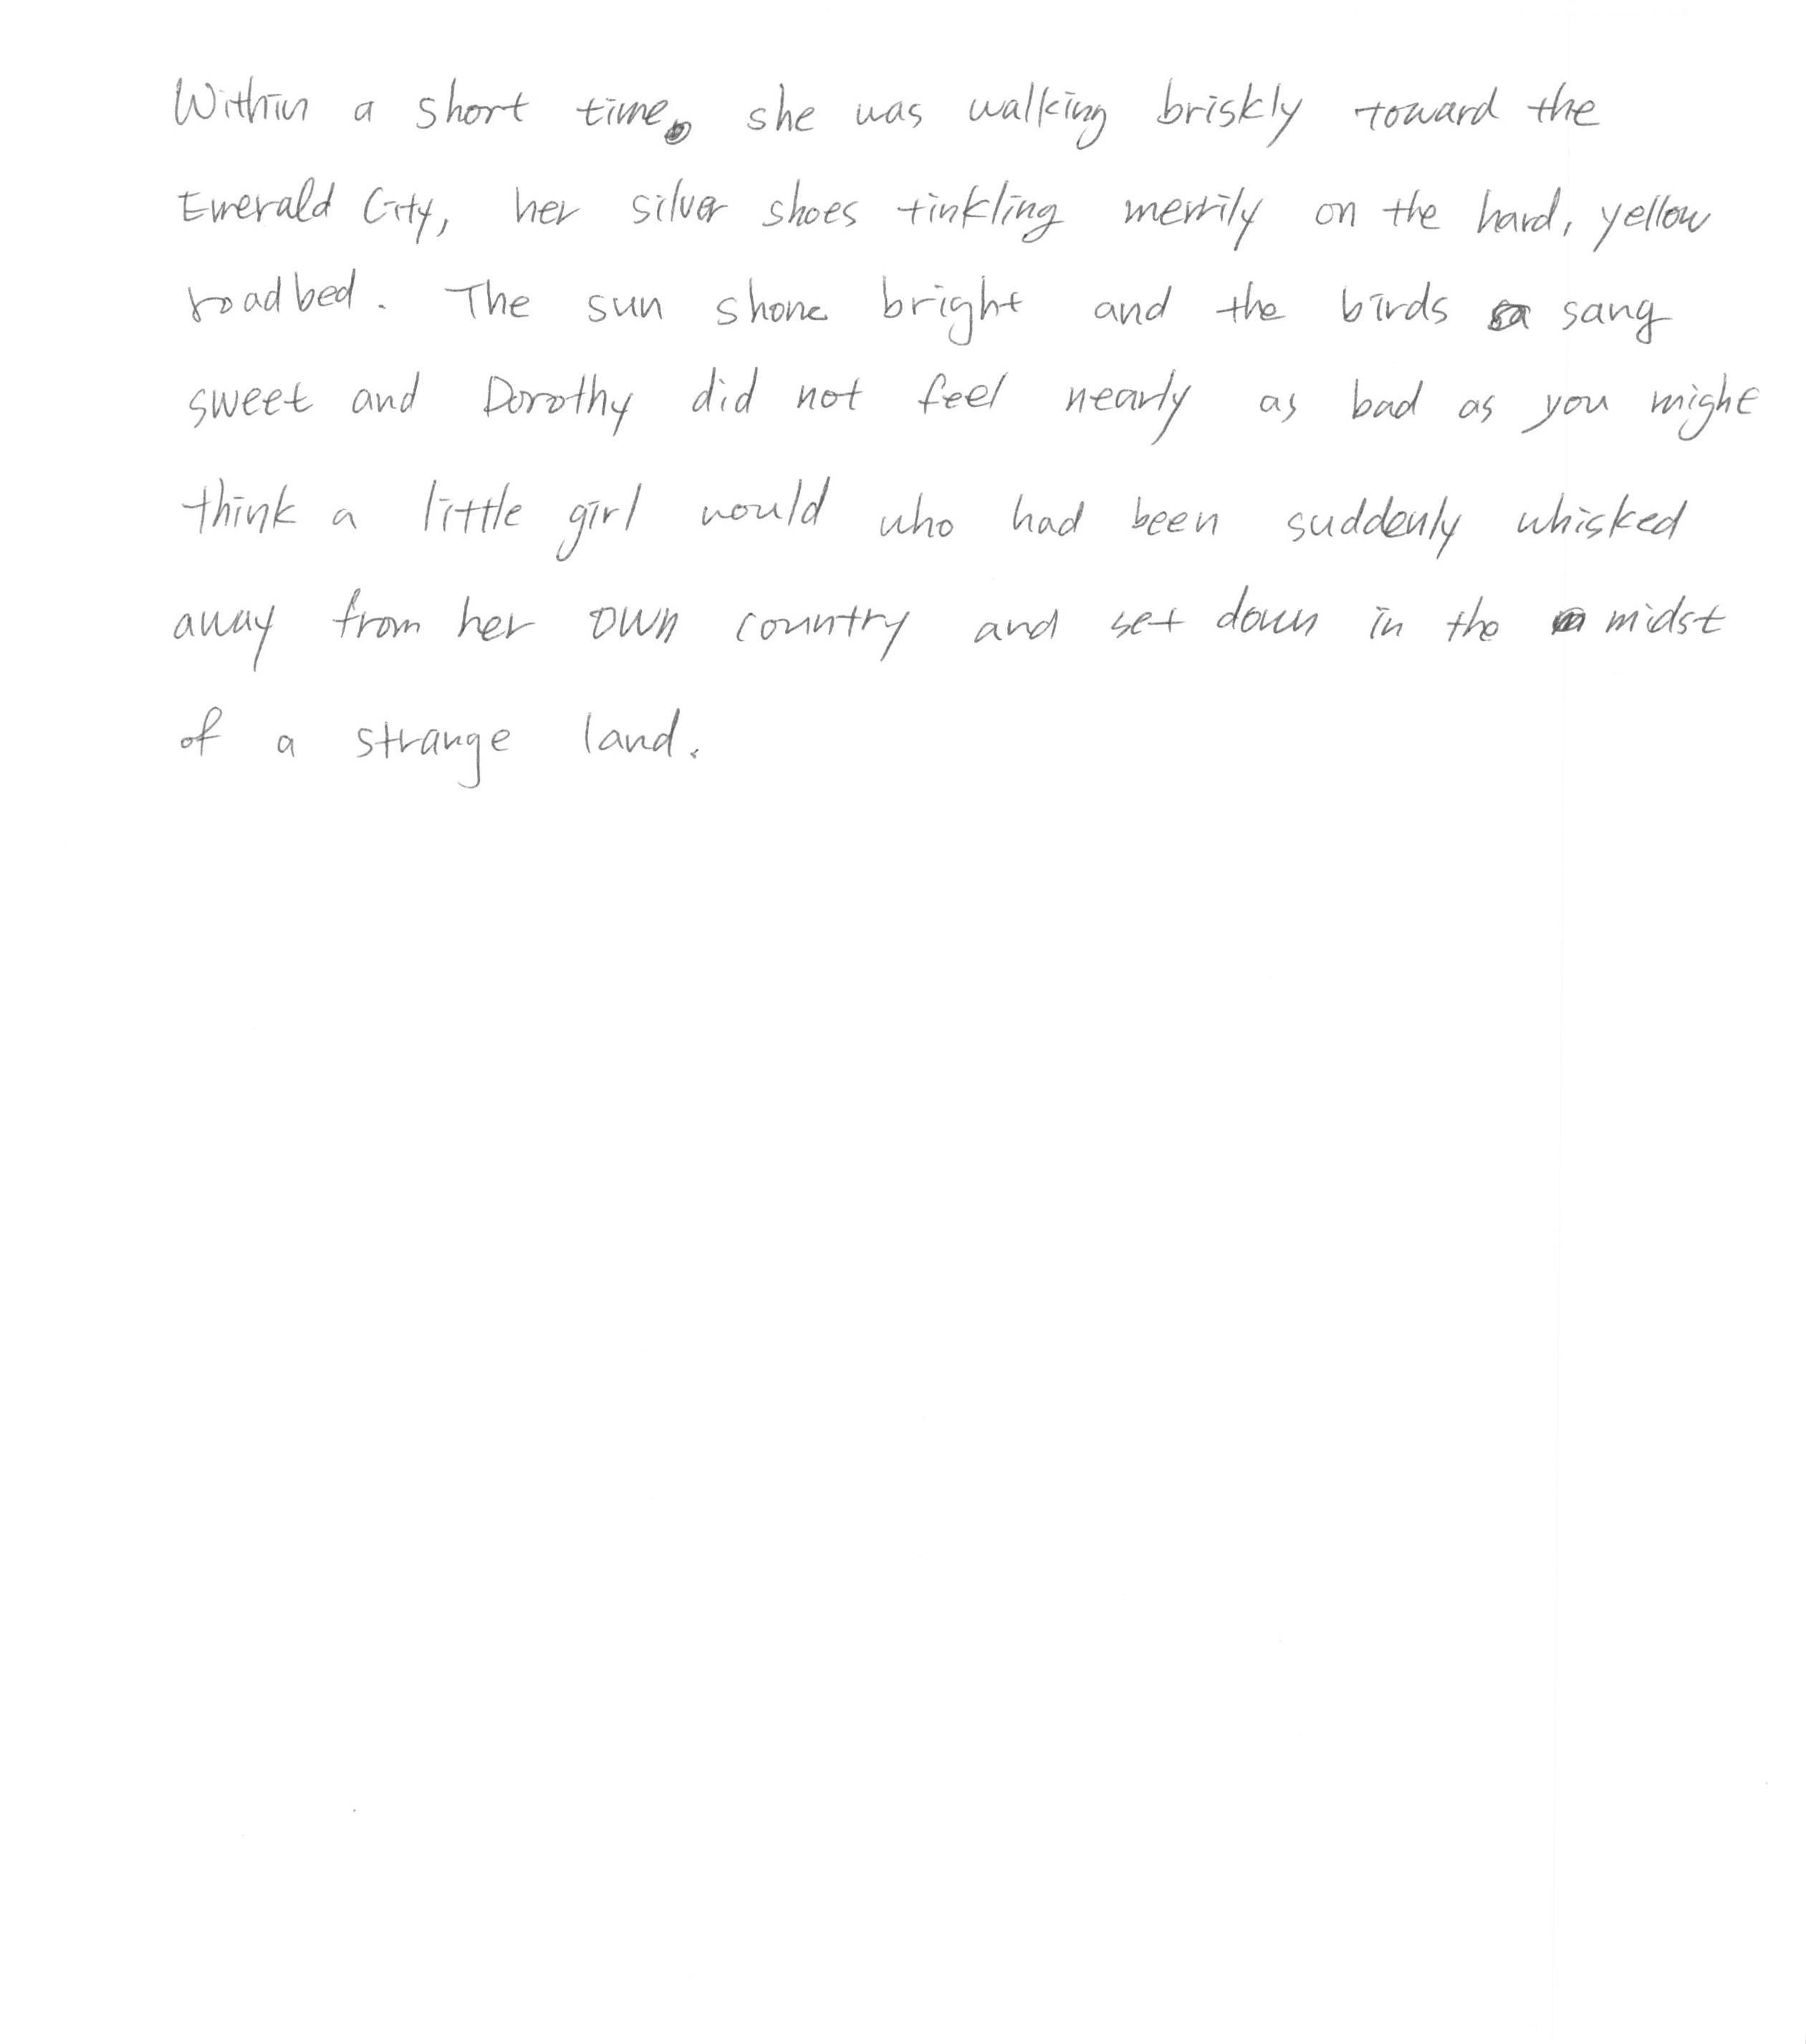 Within a short time she was walking briskly toward the
Emerald City, her silver shoes tinkling merrily on the hard, yellow
roadbed. The sun shone bright and the birds sang
sweet and Dorothy did not feel nearly as bad as you might
think a little girl would who had been suddenly whisked
away from her own country and set down in the midst
of a strange land.